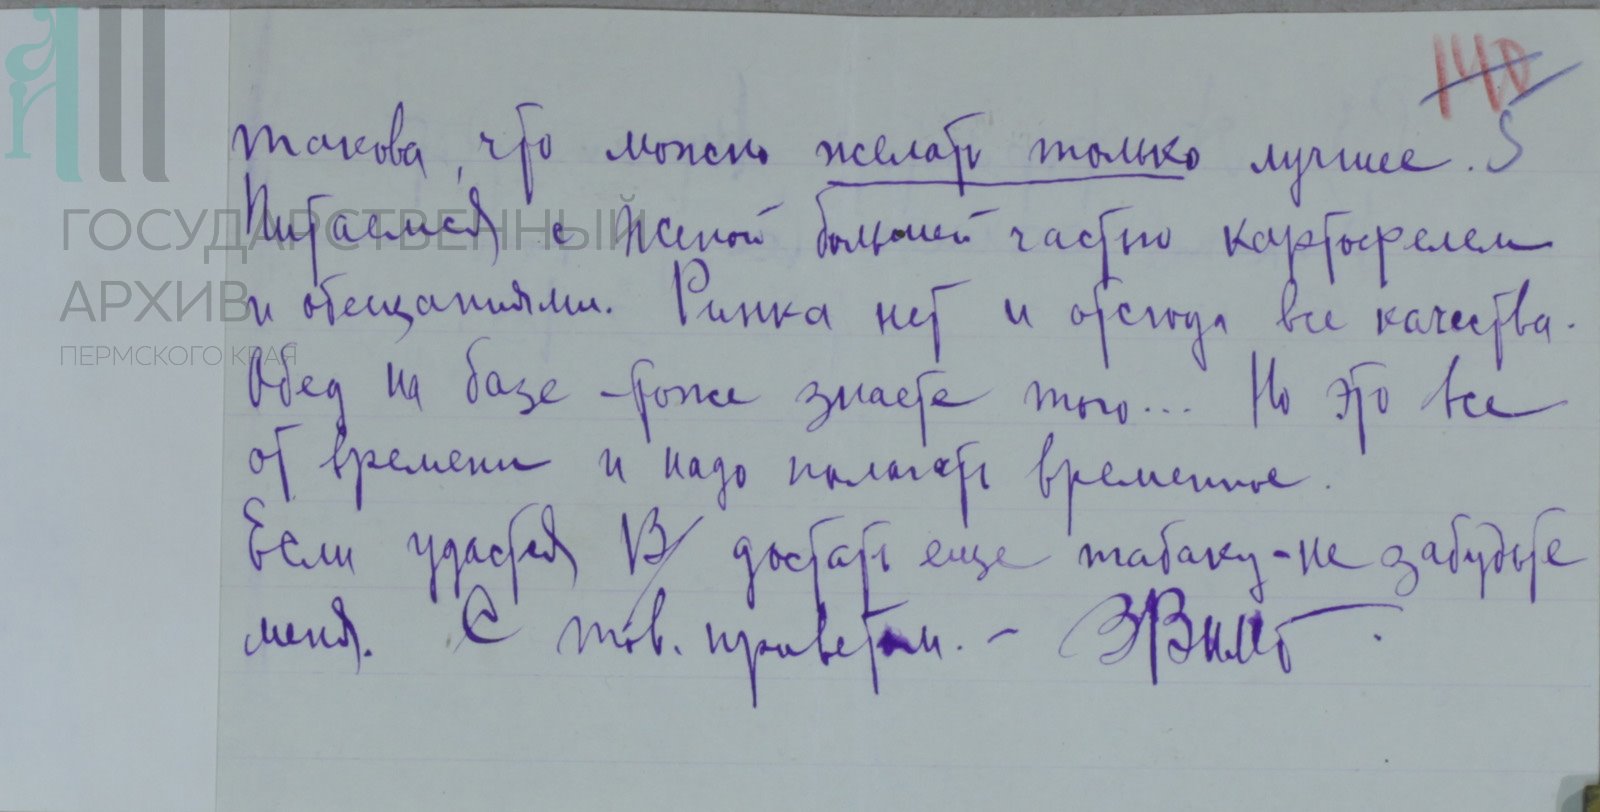 140
такова, что можно желать только лучшее. 5
Питаемся с женой большей частью картофелем
и обещаниями. Рынка нет и отсюда все качества.
Обед на базе - тоже знаете того... Но это все
от времени и надо полагать временное.
Если удастся В/ достать еще табаку - не забудьте
меня. С тов. приветом. -
ГОСУДАРСТВЕННЫЙ
АРХИВ
ПЕРМСКОГО КРАЯ